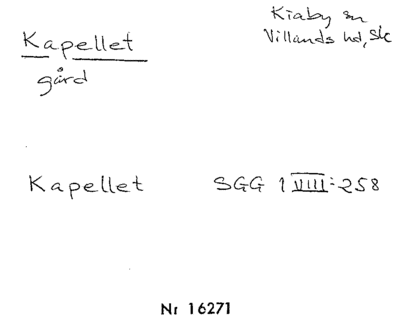 Kapellet
gård
Kiaby sn
Villands hd, Sk
Kapellet SGG 1 VIIII:258
Nr 16271